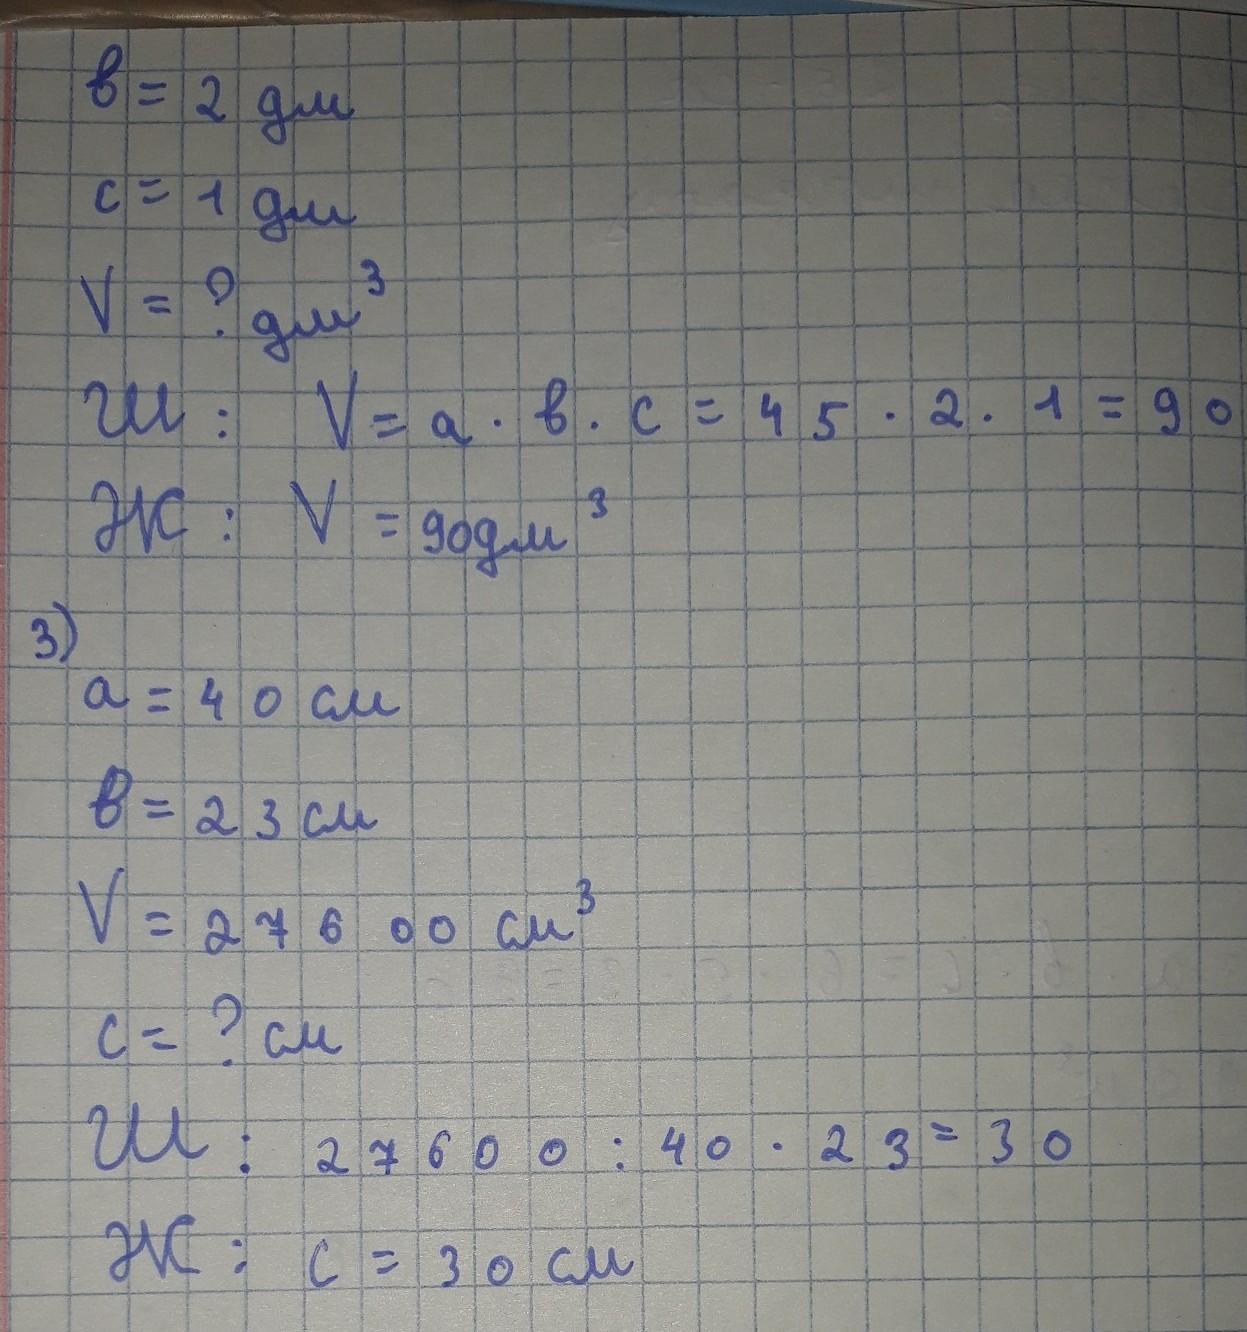 в = 2 дм
с = 1 дм
V = ? дм³
Ш : V = а · в · с = 45 · 2 · 1 = 90
Ж : V = 90дм³
3)
а = 40 см
в = 23 см
V = 27600 см³
с = ? см
Ш : 27600 : 40 · 23 = 30
Ж : с = 30 см